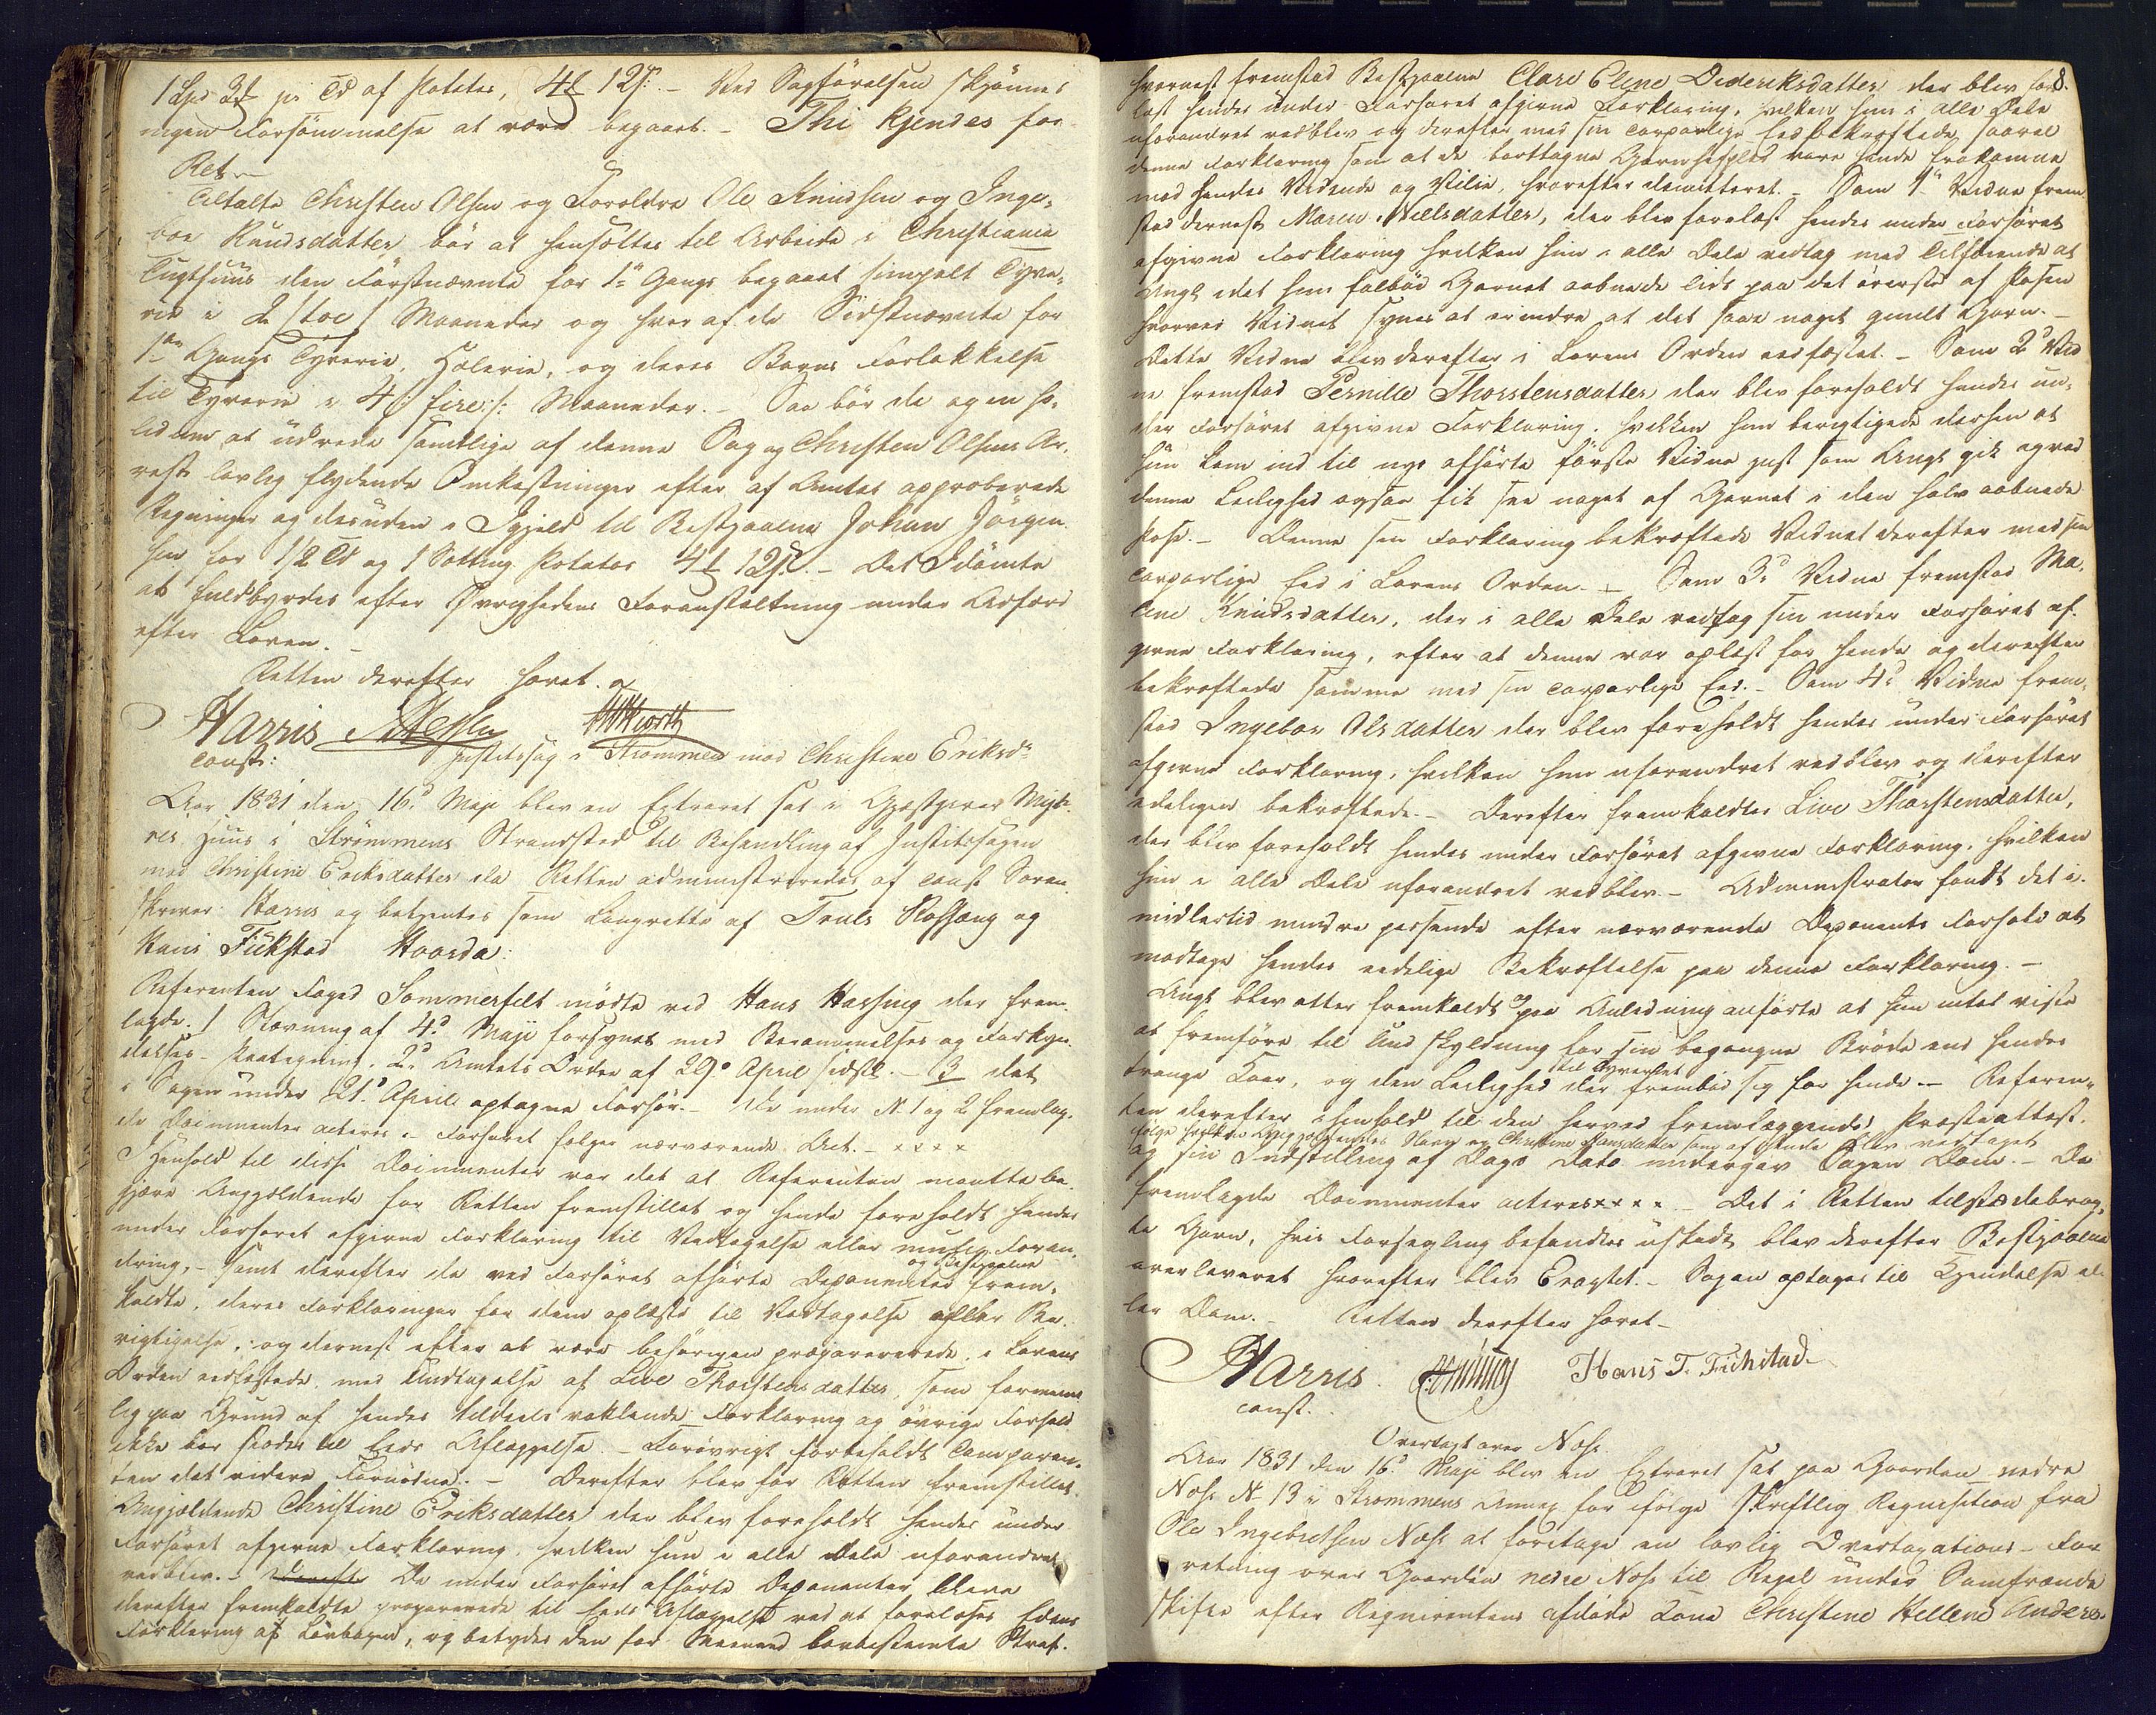 1 Spd 3 ℔ pr Td af Potetes, 4 ℔ 12 s. – Ved Sagførelsen skjønnes
ingen Forsømmelse at være begaaet. – Thi kjendes for
Ret
Tiltalte Christen Olsen og Forældre Ole Knudsen og Inge-
bor Knudsdatter bør at hensættes til Arbeide i Christiania
Tugthuus den Førstnævnte for 1ste Gangs begaaet simpelt Tyve-
rie i 2 /toe/ Maaneder og hver af de Sidstnævnte for
1ste Gangs Tyverie, Hælerie, og deres Barns Forlokkelse
til Tyverie i 4 /: fire :/ Maaneder. – Saa bør de og in so-
lidum at udrede samtlige af denne Sag og Christen Olsens Ar-
rest lovlig flydende Omkostninger efter af Amtet approberede
Regninger og desuden i Igjeld til Bestjaalne Johan Jørgen-
sen for 1/2 Td og 1 Sætting Potetos 4 ℔ 12 s. – Det Idømte
at fuldbyrdes efter Øvrighedens Foranstaltning under Adfærd
efter Loven. –
Retten derefter hævet.
Harris
const:
Justitssag i Strømmen mod Christine Eriksdr
Aar 1831 den 16d Maji blev en Extraret sat i Gjæstgiver
Huus i Strømmens Strandsted til Behandling af Justitssagen
mod Christine Eriksdatter da Retten administreredes af const Soren-
skriver Harris og betjentes som Laugrette af Truls Rossong og
Hans Fickstad Haarda:
Referenten Foged Sommerfelt mødte ved Hans Hassing der frem-
lagde 1 Stævning af 4d Maji forsynet med Berammelses og Forkyn-
delses-Paategning. 2d Amtets Ordre af 29d April sidstl. – 3 det
i Sagen under 21d April optagne Forhør. – De under N 1 og 2 fremlag-
de Documenter acteres. – Forhøret følger nærværende Act. – xxxx
I Henhold til disse Documenter var det at Referenten maatte be-
gjære Angjældende for Retten fremstillet og hende foreholdt hendes
under Forhøret afgivne Forklaring til Vedtagelse eller mulig Foran-
dring, – samt derefter de ved Forhøret afhørte Deponenter og Bestjaalne frem-
kaldte, deres Forklaringer for dem oplæste til Vedtagelse eller Be-
rigtigelse, og dernæst efter at være behørigen præparerede, i Lovens
Orden eedfæstede, med Undtagelse af Live Thorstensdatter, som formeent-
lig paa Grund af hendes tildeels vaklende Forklaring og øvrige Forhold
ikke bør stedes til Eeds Aflæggelse. – Forøvrigt forbeholdt Comparen-
ten det videre Fornødne. – Derefter blev for Retten fremstillet
Angjældende Christine Eriksdatter der blev foreholdt hendes under
Forhøret afgivne Forklaring, hvilken hun i alle Dele uforandret
vedblev. – De under Forhøret afhørte Deponenter bleve
derefter fremkaldte præparerede til Eeds Aflæggelse ved at forelæses Edens
Forklaring af Lovbogen, og betydes den for Meeneed lovbestemte Straf.
8.
hvornæst fremstod Bestjaalne Clare Eline Dideriksdatter der blev fore-
læst hendes under Forhøret afgivne Forklaring, hvilken hun i alle Dele
uforandret vedblev og derefter med sin corporlige Eed bekræftede, saavel
denne Forklaring som at de borttagne Garnhespler vare hende frakomne
mod hendes Vidende og Vilie, hvorefter demitteret. – Som 1ste Vidne frem-
stod dernæst Maren Nielsdatter, der blev forelæst hendes under Forhøret
afgivne Forklaring hvilken hun i alle Dele vedtog med Tilføiende at
Angl. idet hun falbød Garnet aabnede lidt paa det øverste af Posen
hvorved Vidnet synes at erindre at det saae noget guult Garn. –
Dette Vidne blev derefter i Lovens Orden eedfæstet. – Som 2d Vid-
ne fremstod Pernille Thorstensdatter der blev foreholdt hendes un-
der Forhøret afgivne Forklaring, hvilken hun berigtigede derhen at
hun kom ind til nys afhørte første Vidne just som Angl. gik og ved
denne Leilighed ogsaa fik see noget af Garnet i den halv aabnede
Pose. – Denne sin Forklaring bekræftede Vidnet derefter med sin
corporlige Eed i Lovens Orden. – Som 3d Vidne fremstod Ma-
lene Knudsdatter, der i alle Dele vedtog sin under Forhøret af-
givne Forklaring, efter at denne var oplæst for hende og derefter
bekræftede samme med sin corporlige Eed. – Som 4d Vidne frem-
stod Ingebor Olsdatter der blev foreholdt hendes under Forhøret
afgivne Forklaring, hvilken hun uforandret vedblev og derefter
edeligen bekræftede. – Derefter fremkaldtes Live Thorstensdatter,
der blev foreholdt hendes under Forhøret afgivne Forklaring, hvilken
hun i alle Dele uforandret vedblev. – Administrator fandt det i-
midlertid mindre passende efter nærværende Deponents Forhold at
modtage hendes eedelige Bekræftelse paa denne Forklaring. –
Angl. blev atter fremkaldt og paa Anledning anførte at hun intet viste
at fremføre til Undskyldning for sin begangne Brøde end hendes
trange Kaar, og den Leilighed til Tyveriet der frembød sig for hende. – Referen-
ten derefter i Henhold til den herved fremlæggende Præsteattest,
ifølge hvilken Angjældendes Navn er Christine Hansdatter som af hende blev vedtaget
og sin Indstilling af Dags Dato undergav Sagen Dom. – De
fremlagde Documenter acteres xxxx – Det i Retten tilstædebrag-
te Garn, hvis Forsegling befandtes uskadt blev derefter Bestjaalne
overleveret hvorefter blev Eragtet. – Sagen optages til Kjendelse el-
ler Dom. – Retten derefter hævet –
Harris
const.
Hans T. Fichstad
Overtaxt over Næs.
Aar 1831 den 16d Maji blev en Extraret sat paa Gaarden nedre
Næs N 13 i Strømmens Annex for ifølge skriftlig Reqvisition fra
Ole Ingebretsen Næs at foretage en lovlig Overtaxations-For-
retning over Gaarden nedre Næs til Regel under Samfrænde-
skifte efter Reqvirentens afdøde Kone Christine Hellene Anders-